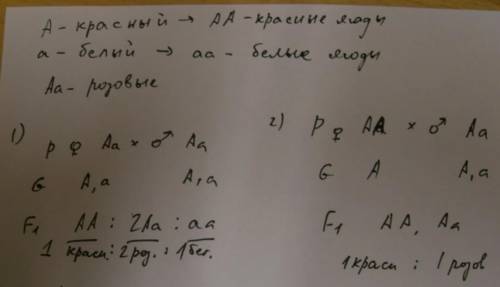 А – красный → АА – красные ягоды
а – белый → аа – белые ягоды
Аа – розовые
1)
P ♀ Аа × ♂ Аа
G А, а А, а
F₁ АА : 2Аа : аа
1 красн : 2 роз. : 1 бел.
2)
P ♀ АА × ♂ Аа
G А А, а
F₁ АА, Аа
1 красн : 1 розов